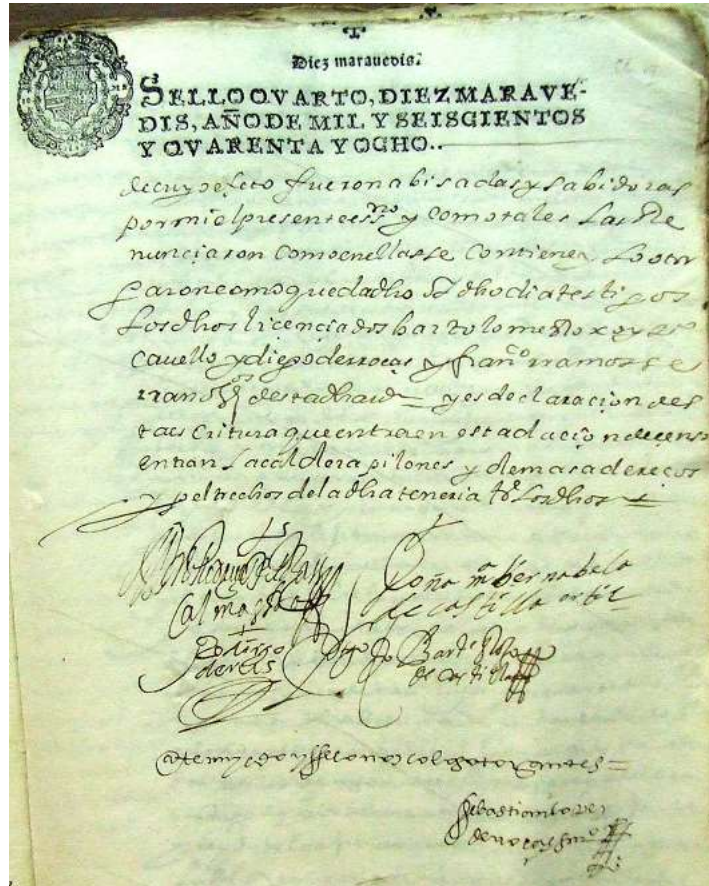 Diez marauedis.
SELLO QVARTO, DIEZ MARAVE-
DIS, AÑO DE MIL Y SEISCIENTOS
Y QVARENTA Y OCHO..
de cuyo efeto fueron abisadas y sabidoras
por mi el presente essno y como tales las Re
nunciaron como en ellas se contiene y lo otor
garon como queda dho dho dia testigos
los dhos licenciados bartolome
cavello y diego de rrocas y franco rramos se
rrano desta dha y es declaracion des
ta escritura que entra en esta dacion de censo
entran la caldera pilones y demas adereços
y peltrechos de la dha teneria to los dhos
Almagro
Doña ma bernabela
de castilla ortiz
Bartme
de castilla
ante my e doy ffe conozco los otorgantes
sebastian lopez